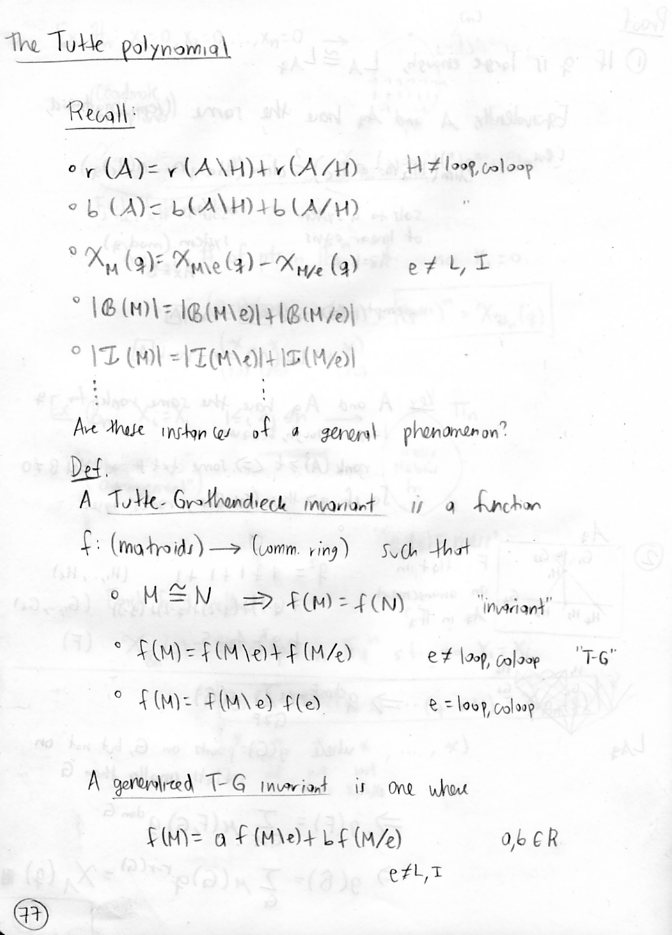 The Tutte polynomial
Recall:
• r (A) = r (A\H) + r (A/H) H ≠ loop, coloop
• b (A) = b (A\H) + b (A/H) "
• χ_M (q) = χ_{M\e} (q) − χ_{M/e} (q) e ≠ L, I
• |B (M)| = |B(M\e)| + |B(M/e)|
• |I (M)| = |I(M\e)| + |I(M/e)|
⋮ ⋮
Are these instances of a general phenomenon?
Def.
A Tutte-Grothendieck invariant is a function
f: (matroids) → (comm. ring) such that
• M ≅ N ⟹ f(M) = f(N) "invariant"
• f(M) = f(M\e) + f(M/e) e ≠ loop, coloop "T-G"
• f(M) = f(M\e) f(e) e = loop, coloop
A generalized T-G invariant is one where
f(M) = a f(M\e) + b f(M/e) a, b ∈ R
e ≠ L, I
77